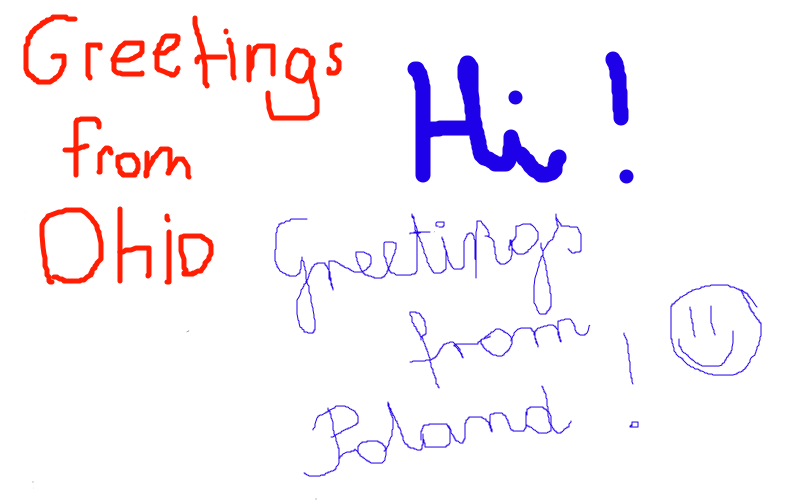 Greetings
from
Ohio
Hi!
Greetings
from
Poland!